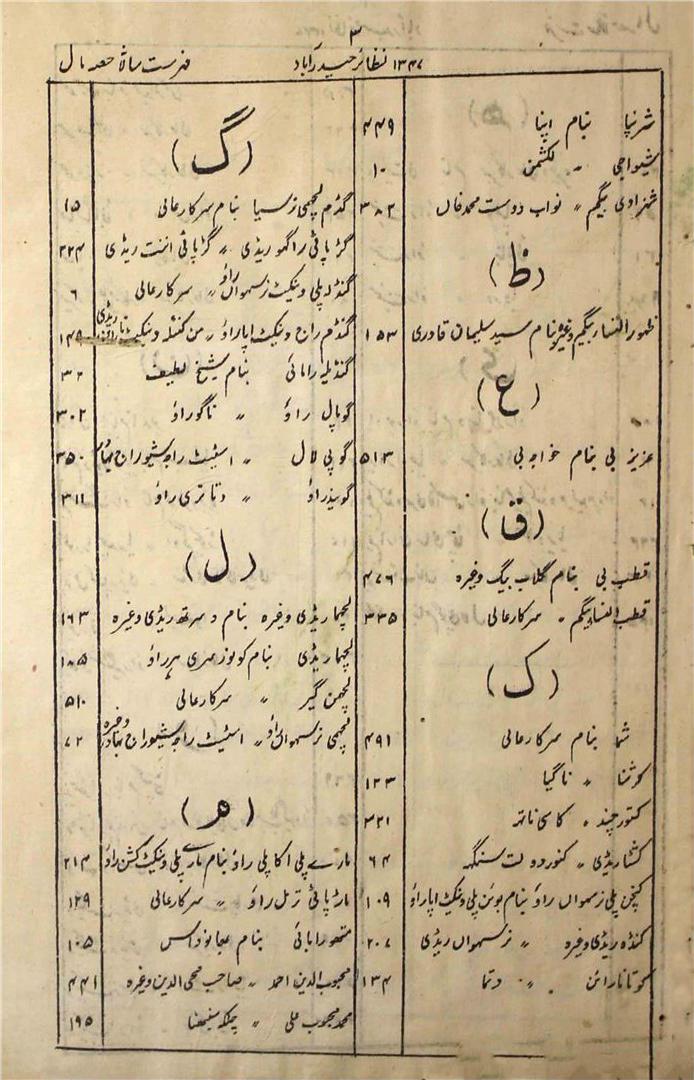 ۳
۱۳۴۷ نظائر حیدرآباد فہرست سالانہ حصہ مال
شرنپا بنام اپنا ۴۴۹
شیواجی 〃 لکشمن ۱۰
شہزادی بیگم 〃 نواب دوست محمد خاں ۳۸۲
(ظ)
ظہور النساء بیگم وغیرہ بنام سید سلیمان قادری ۱۵۳
(ع)
عزیز بی بنام خواجہ بی ۵۱۳
(ق)
قطب بی بنام گلاب بیگ وغیرہ ۴۷۶
قطب النساء بیگم 〃 سرکار عالی ۳۳۵
(ک)
شما بنام سرکار عالی ۴۹۱
کوثنا 〃 ناگیا ۱۲۳
کنور چند 〃 کاسی ناتھ ۳۲۱
کشنا ریڈی 〃 کنور دولت سنگہ ۶۴
پلی نرسمواں راؤ بنام بوئن پلی ونکیٹ اپاراؤ ۱۰۹
کنڈہ ریڈی وغیرہ 〃 نرسمواں ریڈی ۲۰۷
کوتا نارائن 〃 دتما ۱۳۴
(گ)
گڈم لچھمی نرسیا بنام سرکار عالی ۱۵
گڑپاٹی راگھو ریڈی 〃 گڑپاٹی اننت ریڈی ۲۲۴
گنڈلہ پلی ونکیٹ نرسمواں راؤ 〃 سرکار عالی ۶
گنڈم راج ونکیٹ اپاراؤ 〃 ونکیٹ ریڈی ۱۴۹
بنام شیخ لطیف
گوپال راؤ 〃 ناگوراؤ ۳۰۲
گوپی لال 〃 اسٹیٹ راجہ شیوراج بہادر ۳۵۰
گویند راؤ 〃 دتاتری راؤ ۳۱۱
(ل)
لچما ریڈی وغیرہ بنام دسرتھ ریڈی وغیرہ ۱۶۳
لچما ریڈی بنام ہرراؤ ۱۸۵
لچھمن گیر 〃 سرکار عالی ۵۱۰
لچھمی نرسمواں راؤ 〃 اسٹیٹ راجہ شیوراج بہادر وغیرہ ۷۲
(م)
مارے پلی اکاپلی راؤ بنام مارے پلی ونکیٹ کشن راؤ ۲۱۴
مارپاٹی نرمل راؤ 〃 سرکار عالی ۱۲۹
متھورابائی بنام داس ۱۰۵
محبوب الدین احمد 〃 صاحب محی الدین وغیرہ ۴۴۱
محمد محبوب علی 〃 ۱۹۵